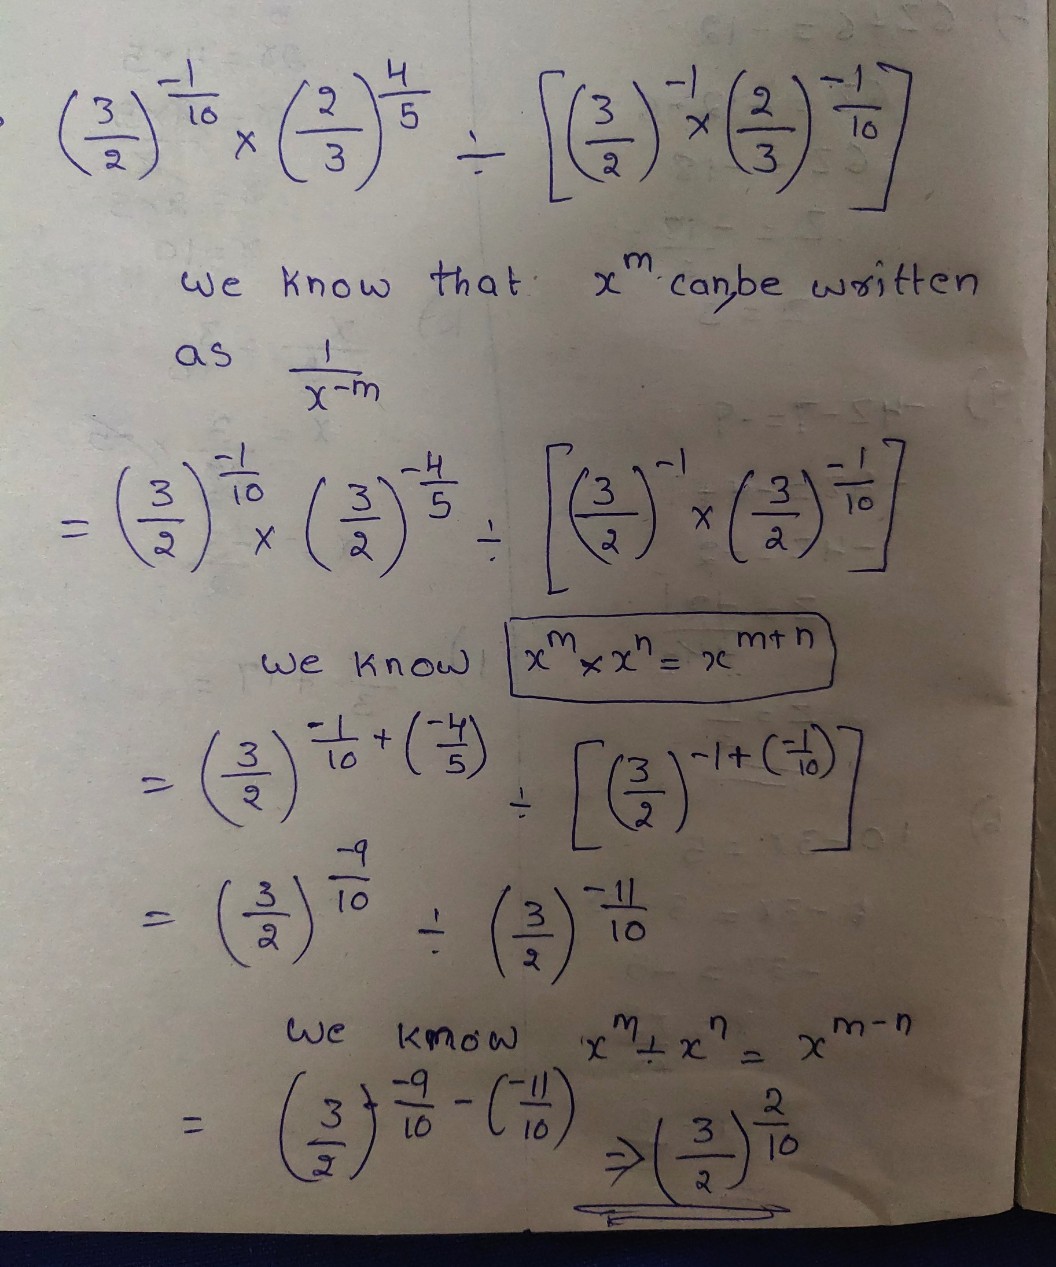 (3/2)^(-1/10) × (2/3)^(4/5) ÷ [(3/2)^(-1) × (2/3)^(-1/10)]
we know that x^m can be written
as 1/x^(-m)
= (3/2)^(-1/10) × (3/2)^(-4/5) ÷ [(3/2)^(-1) × (3/2)^(-1/10)]
we know x^m × x^n = x^(m+n)
= (3/2)^(-1/10 + (-4/5)) ÷ [(3/2)^(-1 + (-1/10))]
= (3/2)^(-9/10) ÷ (3/2)^(-11/10)
we know x^m ÷ x^n = x^(m-n)
= (3/2)^(-9/10 - (-11/10)) ⇒ (3/2)^(2/10)